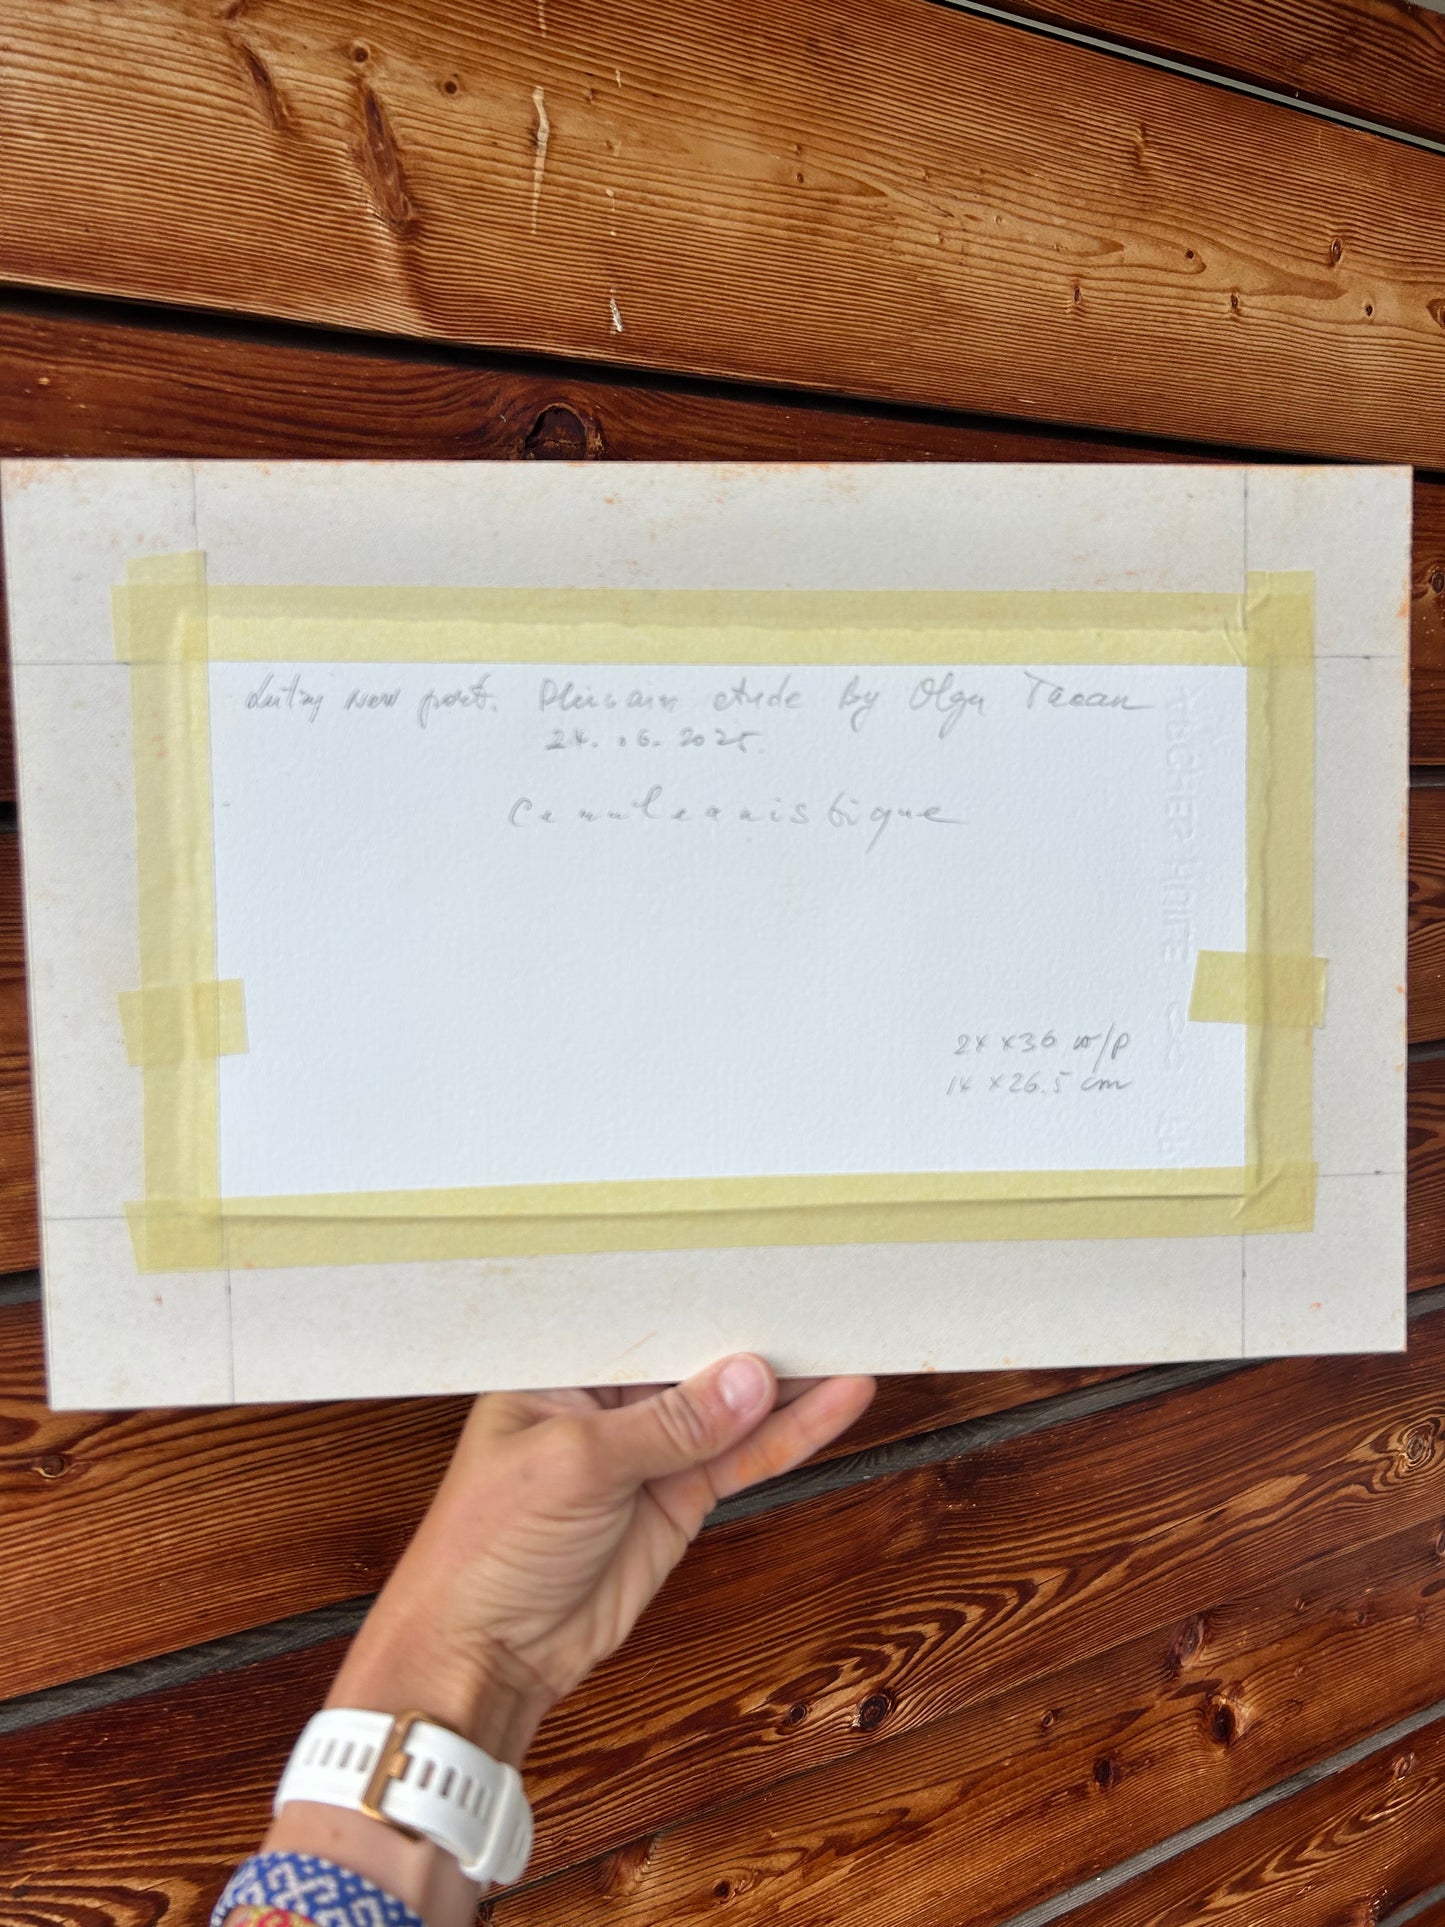 during new port. Plein air etude by Olga Tacan
24. 06. 2025.
Ceruleanistique
24 x 36 w/p
14 x 26.5 cm
ARCHES HUILE